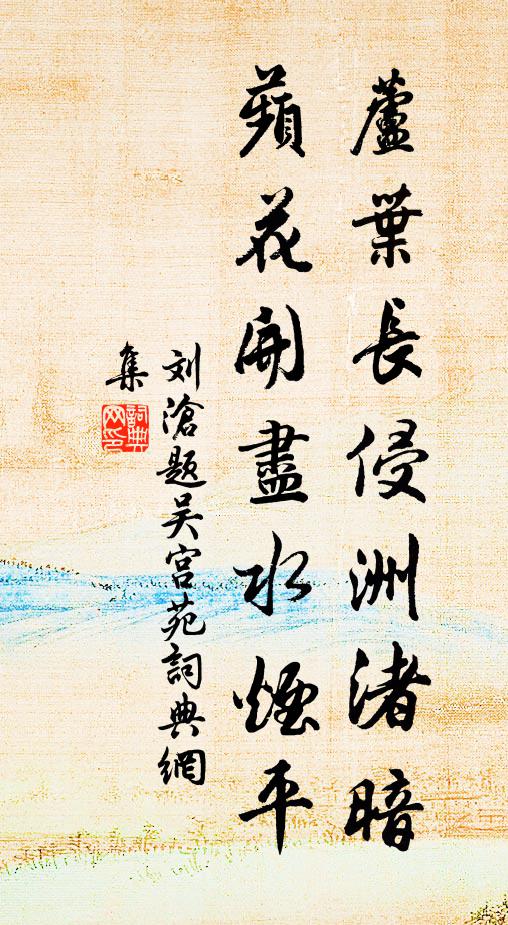 蘆葉長侵洲渚暗
蘋花開盡水煙平
刘滄题吴宫苑詞典網
集
詞典
网印